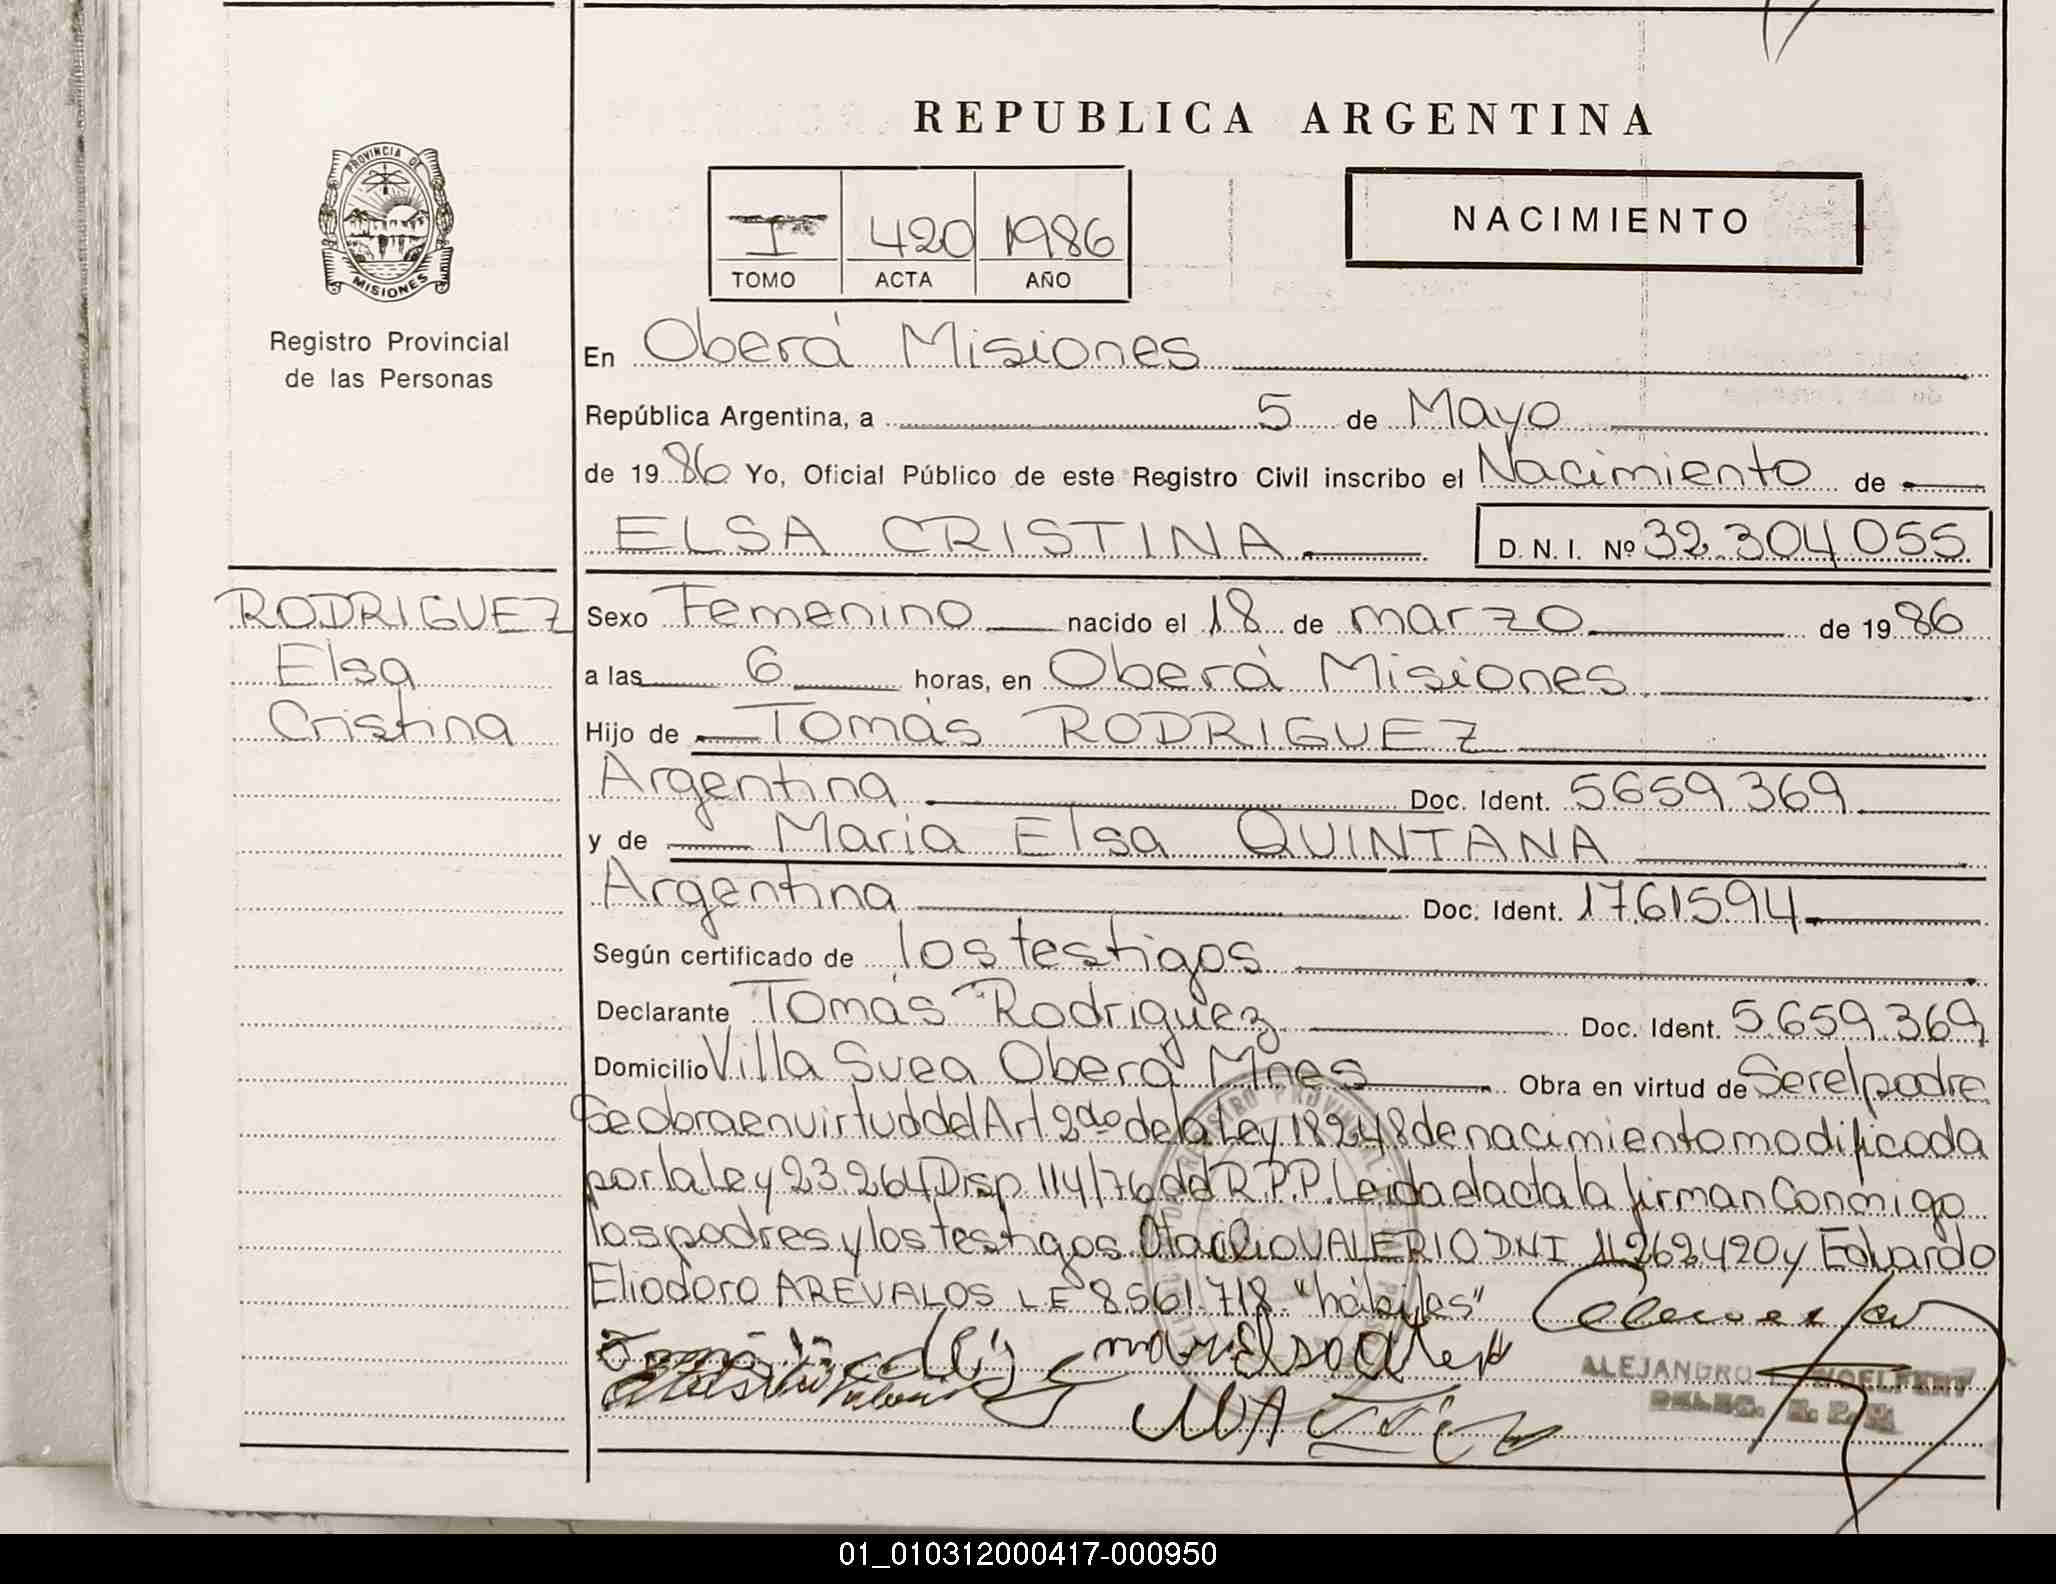 REPUBLICA ARGENTINA
PROVINCIA DE
MISIONES
Registro Provincial
de las Personas
I 420 1986
TOMO ACTA AÑO
NACIMIENTO
En Oberá Misiones
República Argentina, a 5 de Mayo
de 1986 Yo, Oficial Público de este Registro Civil inscribo el Nacimiento de
ELSA CRISTINA D. N. I. Nº 32.304.055
RODRIGUEZ
Elsa
Cristina
Sexo Femenino nacido el 18 de marzo de 1986
a las 6 horas, en Oberá Misiones
Hijo de Tomás RODRIGUEZ
Argentina Doc. Ident. 5659.369
y de Maria Elsa QUINTANA
Argentina Doc. Ident. 1761594
Según certificado de los testigos
Declarante Tomás Rodriguez Doc. Ident. 5.659.369
Domicilio Villa Svea Oberá Mnes Obra en virtud de Ser el padre
Se obra en virtud del Art. 2do de la Ley 18248 de nacimiento modificada
por la ley 23.264 Disp. 114/76 del R.P.P. Leida el acta la firman Conmigo
los padres y los testigos Otacilio VALERIO DNI 11262420 y Eduardo
Eliodoro AREVALOS LE 8561.718 "hábiles"
ALEJANDRO
DELEG. R. P. P.
01_010312000417-000950